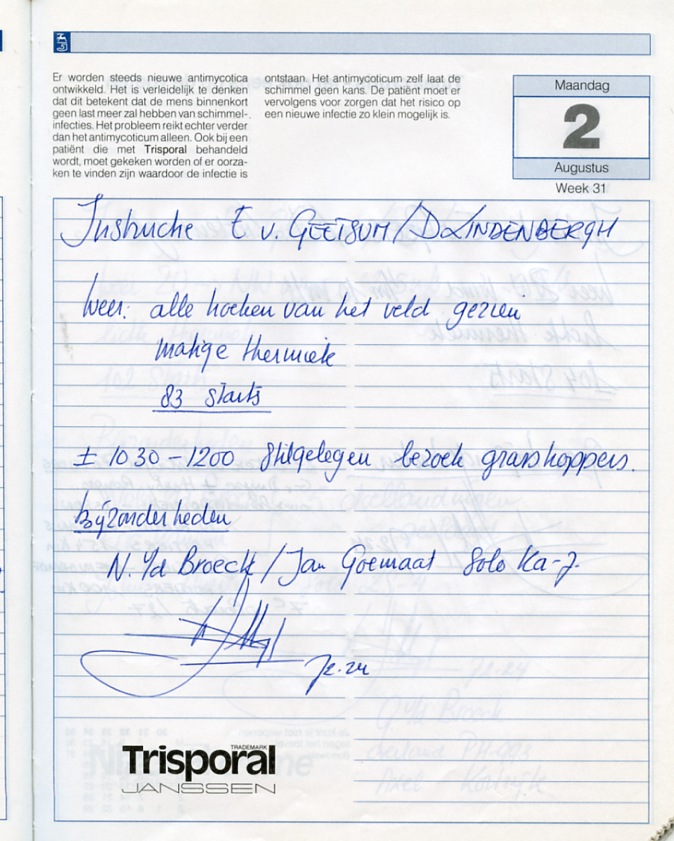 Er worden steeds nieuwe antimycotica
ontwikkeld. Het is verleidelijk te denken
dat dit betekent dat de mens binnenkort
geen last meer zal hebben van schimmel-
infecties. Het probleem reikt echter verder
dan het antimycoticum alleen. Ook bij een
patiënt die met Trisporal behandeld
wordt, moet gekeken worden of er oorza-
ken te vinden zijn waardoor de infectie is
ontstaan. Het antimycoticum zelf laat de
schimmel geen kans. De patiënt moet er
vervolgens voor zorgen dat het risico op
een nieuwe infectie zo klein mogelijk is.
Maandag
2
Augustus
Week 31
Instructie E v. GEETSUM / D LINDENBERGH
Weer: alle hoeken van het veld gezien
matige thermiek
83 starts
± 1030 - 1200 Stilgelegen bezoek grasshoppers.
bijzonderheden
N. v/d Broeck / Jan Goemaat Solo Ka-7.
TRADEMARK
Trisporal
JANSSEN